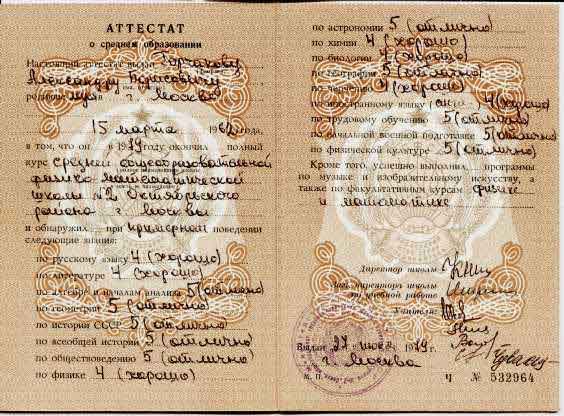 АТТЕСТАТ
о среднем образовании
Настоящий аттестат выдан Горчакову
Александру Борисовичу
в г. Москва
15 марта 1962 года,
в том, что он в 1979 году окончил полный
курс средней общеобразовательной
физико математической
школы №2 Октябрьского
района г. Москвы
и обнаружил при примерном поведении
следующие знания:
по русскому языку 4 (хорошо)
по литературе 4 (хорошо)
по алгебре и началам анализа 5 (отлично)
по геометрии 5 (отлично)
по истории СССР 5 (отлично)
по всеобщей истории 5 (отлично)
по обществоведению 5 (отлично)
по физике 4 (хорошо)
по астрономии 5 (отлично)
по химии 4 (хорошо)
по биологии 4 (хорошо)
по географии 5 (отлично)
по черчению 4 (хорошо)
по иностранному языку 4 (хорошо)
по трудовому обучению 5 (отлично)
по начальной военной подготовке 5 (отлично)
по физической культуре 5 (отлично)
Кроме того, успешно выполнил программы
по музыке и изобразительному искусству, а
также по факультативным курсам физике
и математике
Директор школы
Зам. директора школы
по учебной работе
Учителя:
Выдан 27 1979 г.
г. Москва
М. П.
Ч № 532964